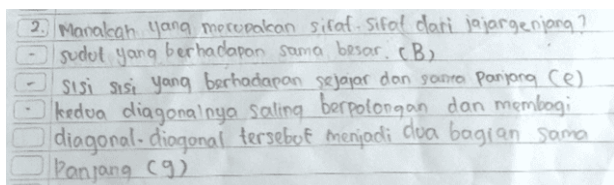 2. Manakah yang merupakan sifat-sifat dari jajargenjang?
- sudut yang berhadapan sama besar. (B)
- sisi sisi yang berhadapan sejajar dan sama panjang (e)
- kedua diagonalnya saling berpotongan dan membagi
diagonal-diagonal tersebut menjadi dua bagian sama
Panjang (g)